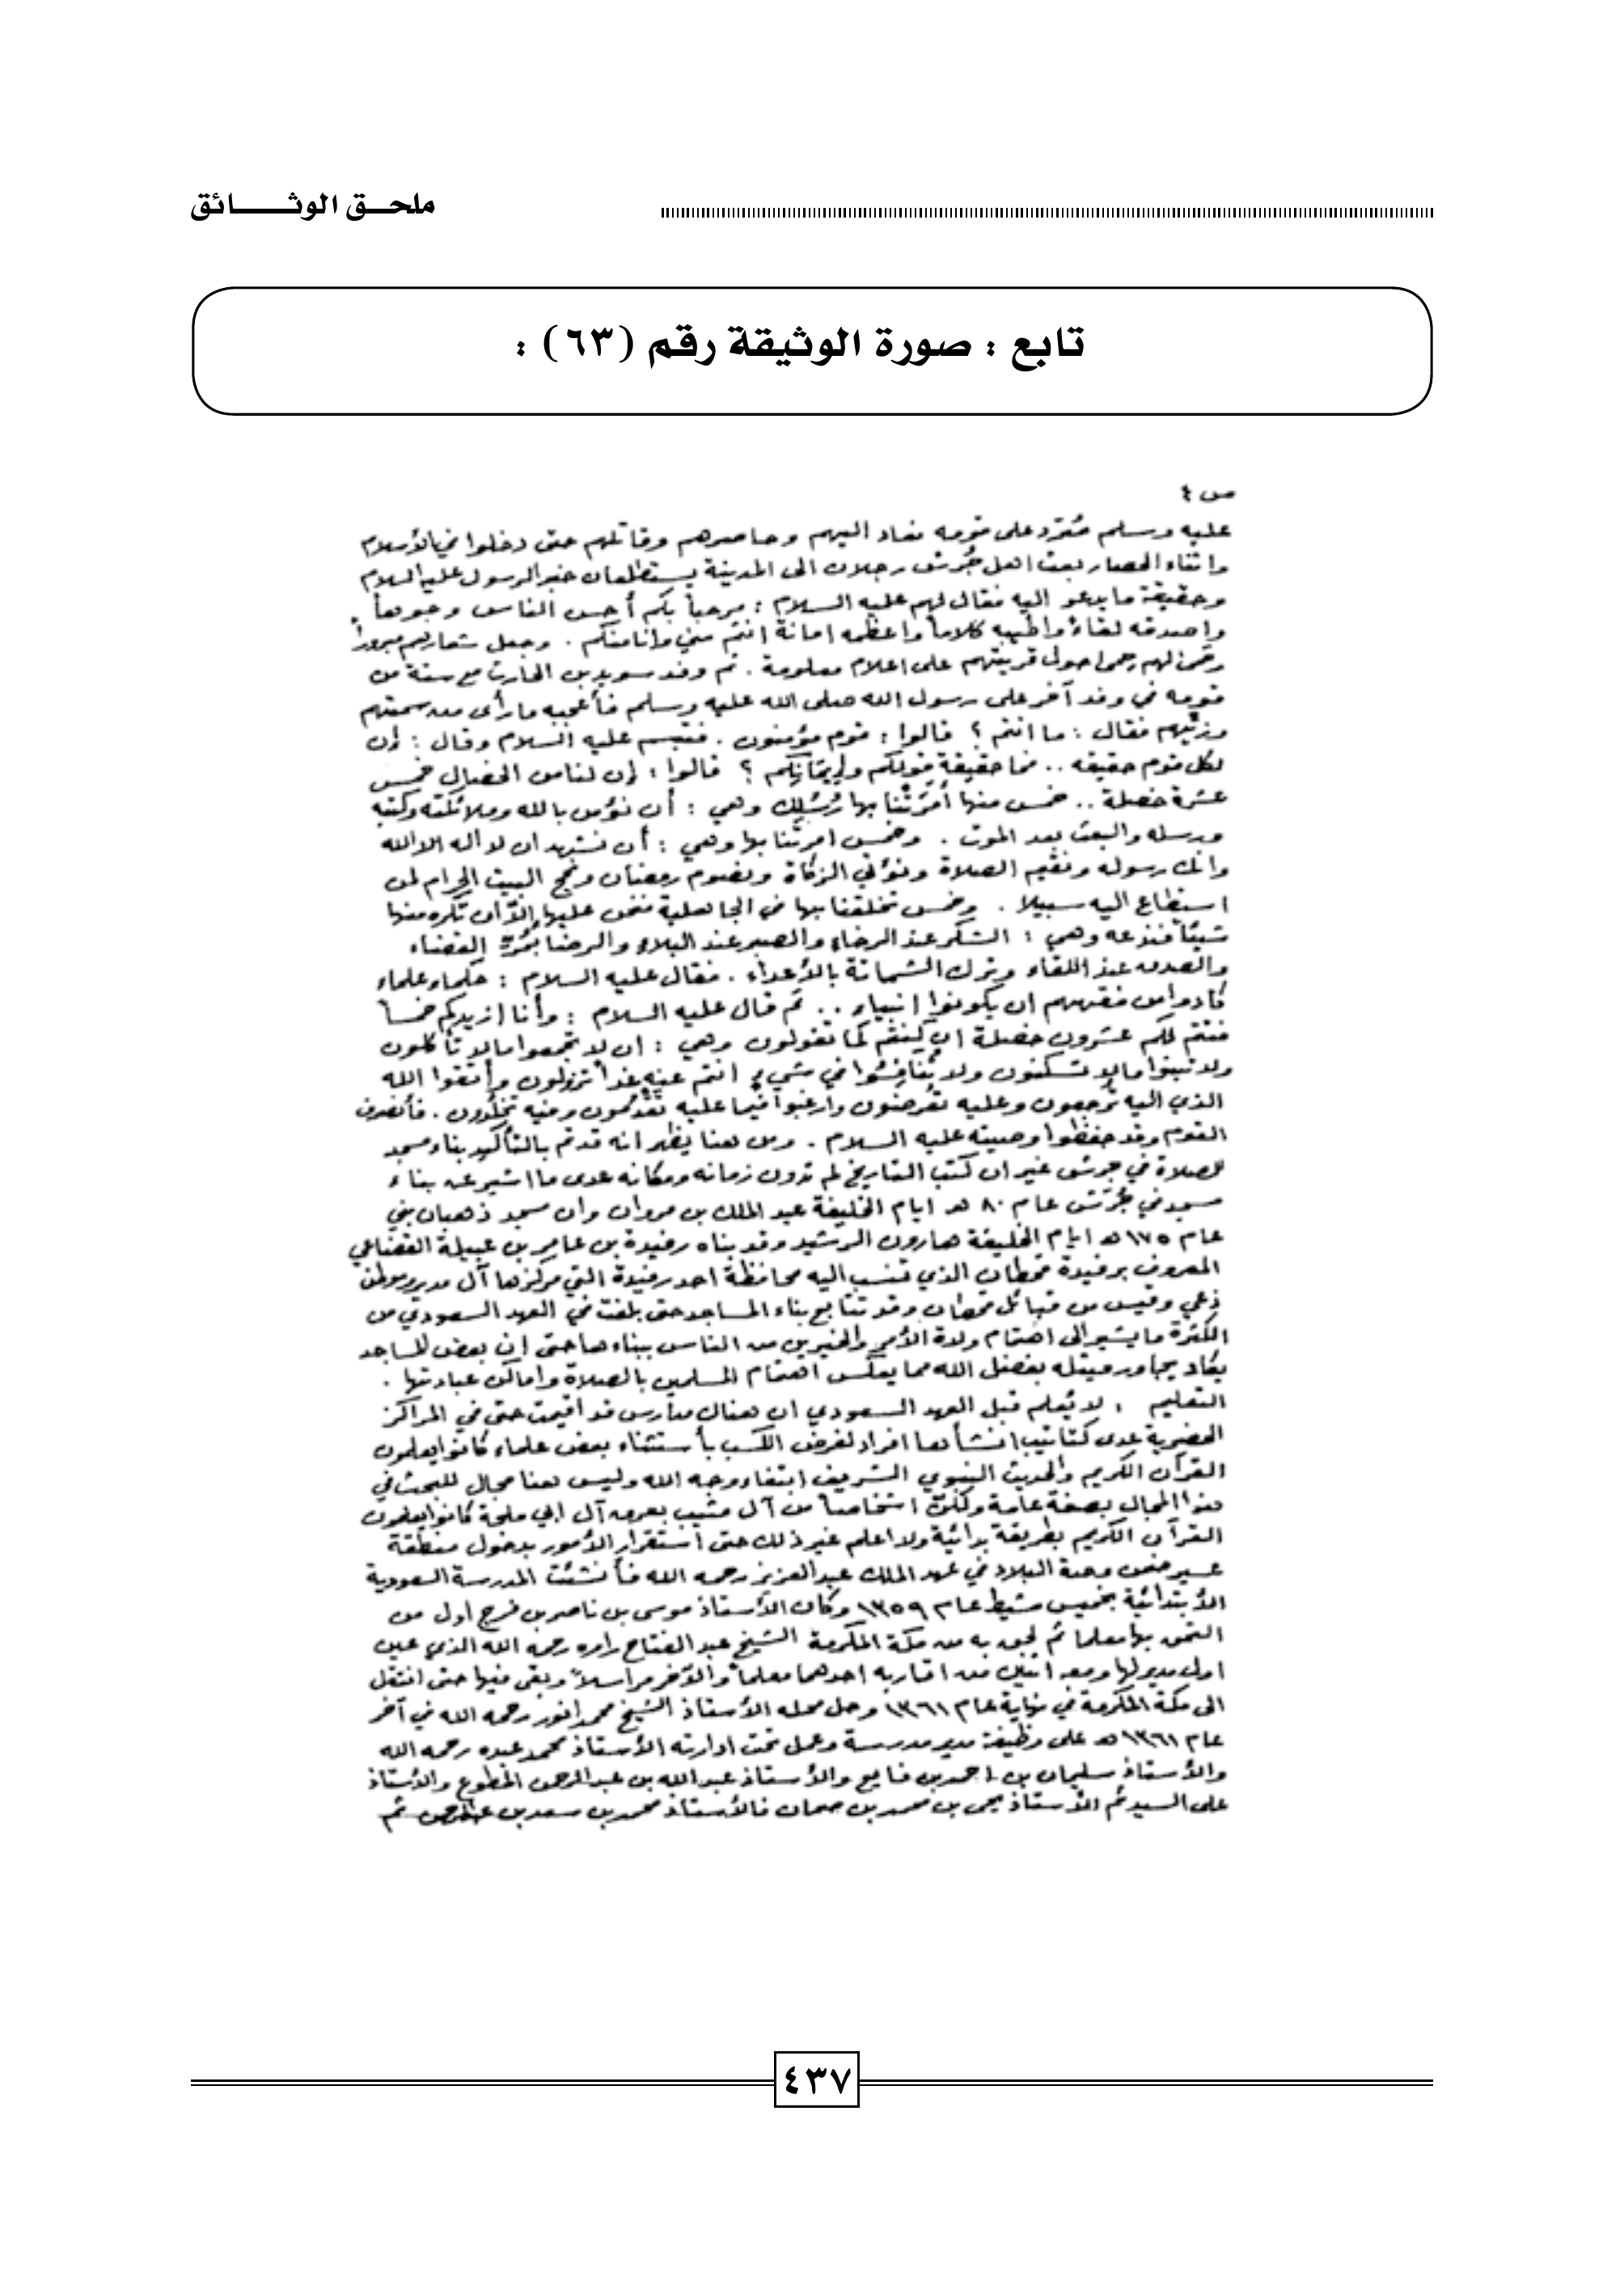 ملحـــق الوثـــــــائق
تابع : صورة الوثيقة رقم (٦٣) :
ص ٤
عليه وسلم فتمرد على قومه فعاد اليهم وحاصرهم وقاتلهم حتى دخلوا في الأسلام
واثناء الحصار بعث اهل جُرش رجلان الى المدينة يستطلعان خبر الرسول عليه السلام
وحقيقة ما يدعو اليه فقال لهم عليه السلام : مرحباً بكم أحسن الناس وجوهاً
واصدقه لقاءً واطيبه كلاماً واعظمه امانة انتم مني وانا منكم . وجعل شعارهم مبروراً
وحمى لهم حمى حول قريتهم على اعلام معلومة . ثم وفد سويد بن الحارث مع ستة من
قومه في وفد آخر على رسول الله صلى الله عليه وسلم فأعجبه ما رأى من سمتهم
وزيّهم فقال : ما انتم ؟ قالوا : قوم مؤمنون . فتبسم عليه السلام وقال : إن
لكل قوم حقيقه .. فما حقيقة قولكم وإيمانكم ؟ قالوا : إن لنا من الخصال خمس
عشرة خصلة .. خمس منها أمَرَتْنا بها رُسُلك وهي : أن نؤمن بالله وملائكته وكتبه
ورسله والبعث بعد الموت . وخمس امرتنا بها وهي : أن نشهد ان لا اله الا الله
وانك رسوله ونقيم الصلاة ونؤتي الزكاة ونصوم رمضان ونحج البيت الحرام لمن
استطاع اليه سبيلا . وخمس تخلقنا بها في الجاهلية فنحن عليها إلاّ ان تكره منها
شيئاً فنذعه وهي : الشكر عند الرخاء والصبر عند البلاء والرضا بمُرِّ القضاء
والصدق عند اللقاء وترك الشماتة بالأعداء . فقال عليه السلام : حكماء علماء
كادوا من فقههم ان يكونوا انبياء .. ثم قال عليه السلام : وأنا ازيدكم خمساً
فتتم لكم عشرون خصلة ان كنتم كما تقولون وهي : ان لا تجمعوا مالا تأكلون
ولا تبنوا مالا تسكنون ولا تُنافِسُوا في شيء انتم عنه غداً تزولون وأتقوا الله
الذي اليه تُرجعون وعليه تُعرضون وارغبوا فيما عليه تَقْدُمون وفيه تخلُدون . فأنصرف
القوم وقد حفظوا وصيته عليه السلام . ومن هنا يظهر انه قد تم بالتأكيد بناء مسجد
للصلاة في جرش غير ان كتب التاريخ لم تدون زمانه ومكانه عدى ما اشير عن بناء
مسجد في جُرَش عام ٨٠ هـ ايام الخليفة عبد الملك بن مروان وان مسجد ذهبان بني
عام ١٧٥ هـ ايام الخليفة هارون الرشيد وقد بناه رفيدة بن عامر بن عبيلة القضاعي
المعروف برفيدة قحطان الذي تنسب اليه محافظة احد رفيدة التي مركزها آل مدير وموطن
ذعي وقيس من قبائل قحطان وقد تتابع بناء المساجد حتى بلغت في العهد السعودي من
الكثرة ما يشير الى اهتمام ولاة الأمر والخيرين من الناس ببناءها حتى إن بعض المساجد
يكاد يجاور مثله بفضل الله مما يعكس اهتمام المسلمين بالصلاة واماكن عبادتها .
التعليم : لا يُعلم قبل العهد السعودي ان هناك مدارس قد اقيمت حتى في المراكز
الحضرية عدى كتاتيب انشأها افراد لغرض الكسب بأستثناء بعض علماء كانوا يعلمون
القرآن الكريم والحديث النبوي الشريف ابتغاء وجه الله وليس هنا مجال للبحث في
هذا المجال بصفة عامة ولكنّ اشخاصاً من آل مشيب بعرق آل ابي ملحة كانوا يعلمون
القرآن الكريم بطريقة بدائية ولا اعلم غير ذلك حتى استقرار الأمور بدخول منطقة
عسير ضمن وحدة البلاد في عهد الملك عبد العزيز رحمه الله فأنشئت المدرسة السعودية
الأبتدائية بخميس مشيط عام ١٣٥٩ وكان الأستاذ موسى بن ناصر بن فرج اول من
التحق بها معلما ثم لحق به من مكة المكرمة الشيخ عبد الفتاح راوه رحمه الله الذي عين
اول مدير لها ومعه اثنين من اقاربه احدهما معلماً والآخر مراسلاً وبقى فيها حتى انتقل
الى مكة المكرمة في نهاية عام ١٣٦١ وحل محله الأستاذ الشيخ محمد انور رحمه الله في آخر
عام ١٣٦١ هـ على وظيفة مدير مدرسة وعمل تحت ادارته الأستاذ محمد عبده رحمه الله
والأستاذ سليمان بن احمد بن فايع والأستاذ عبد الله بن عبد الرحمن المطوع والأستاذ
على السيد ثم الأستاذ يحي بن محمد بن صمان فالأستاذ محمد بن سعد بن عبد الرحمن ثم
٤٣٧